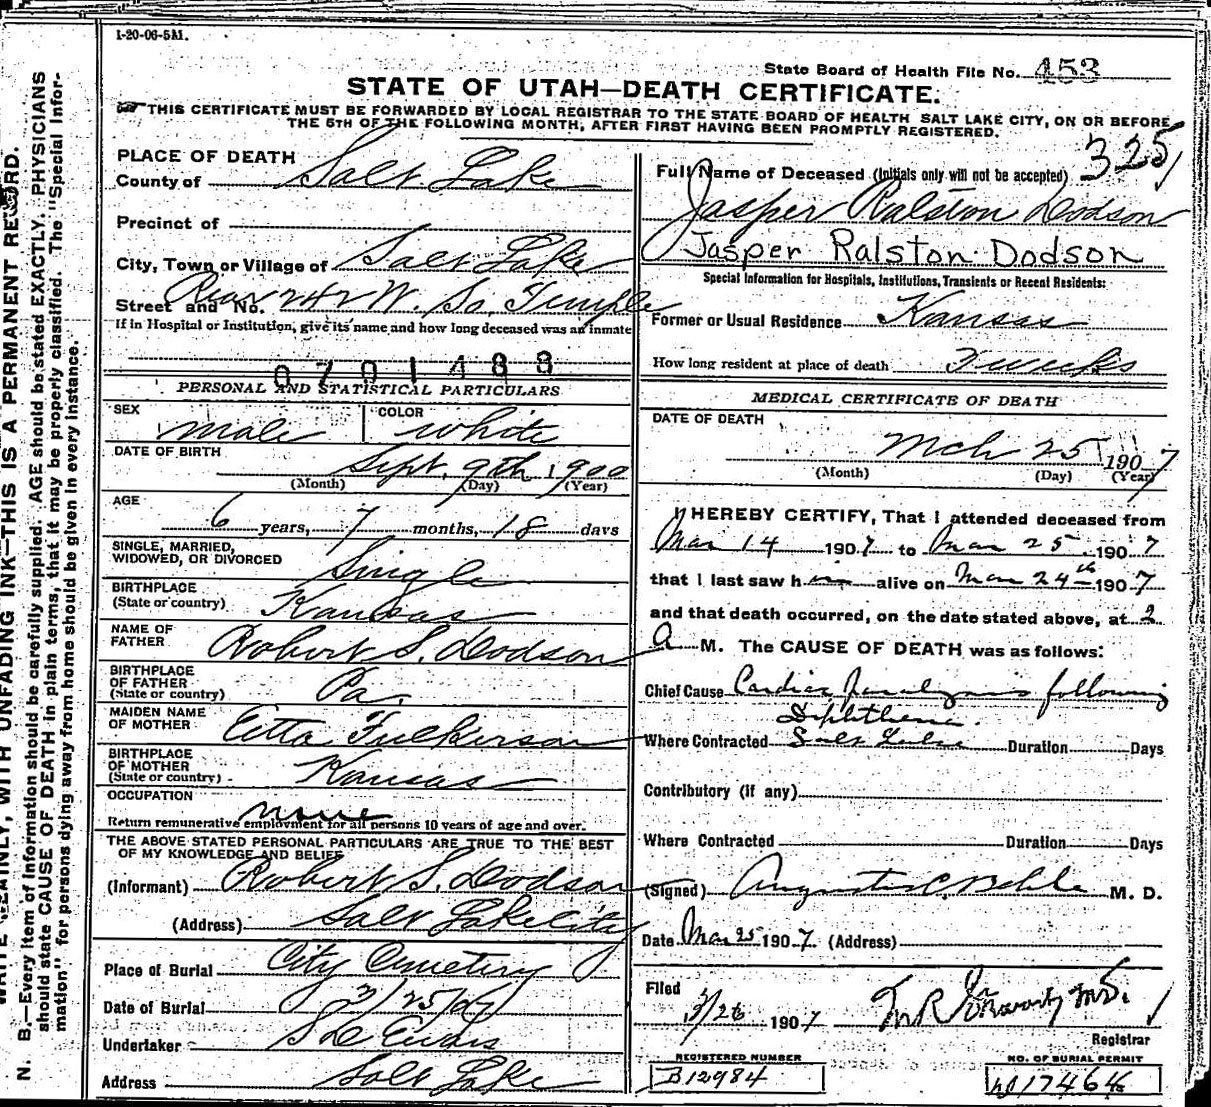 1-20-06-5M.
State Board of Health File No. 453
STATE OF UTAH—DEATH CERTIFICATE.
THIS CERTIFICATE MUST BE FORWARDED BY LOCAL REGISTRAR TO THE STATE BOARD OF HEALTH SALT LAKE CITY, ON OR BEFORE
THE 5TH OF THE FOLLOWING MONTH, AFTER FIRST HAVING BEEN PROMPTLY REGISTERED.
325
PLACE OF DEATH
County of Salt Lake
Precinct of
City, Town or Village of Salt Lake
Street and No. Rear 242 W. So. Temple
If in Hospital or Institution, give its name and how long deceased was an inmate
0701483
PERSONAL AND STATISTICAL PARTICULARS
SEX male COLOR white
DATE OF BIRTH Sept. 9th 1900
(Month) (Day) (Year)
AGE 6 years, 7 months, 18 days
SINGLE, MARRIED,
WIDOWED, OR DIVORCED Single
BIRTHPLACE
(State or country) Kansas
NAME OF
FATHER Robert S. Dodson
BIRTHPLACE
OF FATHER
(State or country) Pa.
MAIDEN NAME
OF MOTHER Etta Fulkerson
BIRTHPLACE
OF MOTHER
(State or country) Kansas
OCCUPATION none
Return remunerative employment for all persons 10 years of age and over.
THE ABOVE STATED PERSONAL PARTICULARS ARE TRUE TO THE BEST
OF MY KNOWLEDGE AND BELIEF
(Informant) Robert S. Dodson
(Address) Salt Lake City
Place of Burial City Cemetery
Date of Burial 3/25/07
Undertaker Evans
Address Salt Lake
Full Name of Deceased (Initials only will not be accepted)
Jasper Ralston Dodson
Jasper Ralston Dodson
Special Information for Hospitals, Institutions, Transients or Recent Residents:
Former or Usual Residence Kansas
How long resident at place of death weeks
MEDICAL CERTIFICATE OF DEATH
DATE OF DEATH
Mch 25 1907
(Month) (Day) (Year)
I HEREBY CERTIFY, That I attended deceased from
Mar 14 1907 to Mar 25 1907
that I last saw him alive on Mar 24th 1907
and that death occurred, on the date stated above, at 2
A M. The CAUSE OF DEATH was as follows:
Chief Cause Cardiac paralysis following
Diphtheria.
Where Contracted Salt Lake Duration Days
Contributory (if any)
Where Contracted Duration Days
(Signed) Augustus C. Behle M. D.
Date Mar 25 1907. (Address)
Filed
3/26 1907 M.D.
Registrar
REGISTERED NUMBER
B12984
NO. OF BURIAL PERMIT
17464
WRITE PLAINLY, WITH UNFADING INK—THIS IS A PERMANENT RECORD.
N. B.—Every item of information should be carefully supplied. AGE should be stated EXACTLY. PHYSICIANS
should state CAUSE OF DEATH in plain terms, that it may be properly classified. The "Special Infor-
mation" for persons dying away from home should be given in every instance.